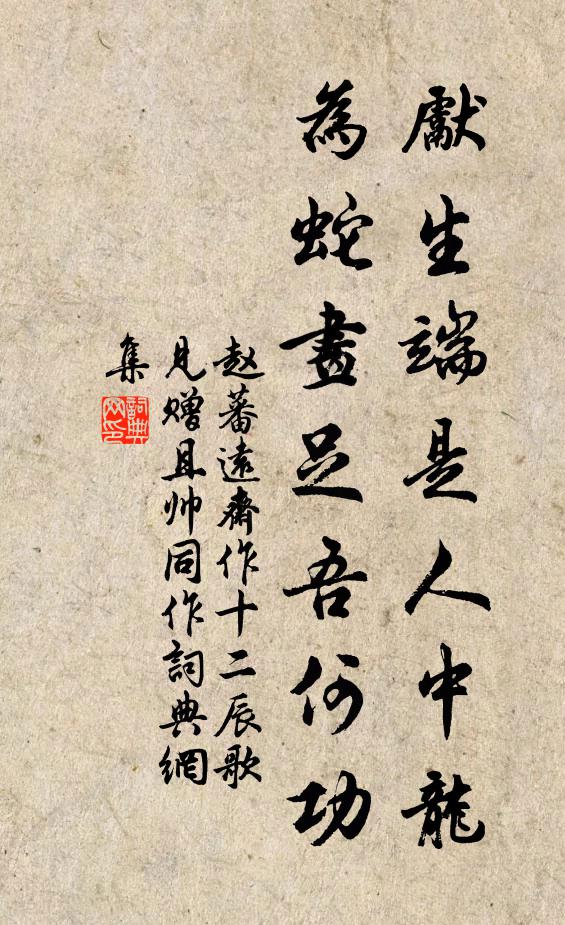 獻生端是人中龍
為蛇畫足吾何功
赵蕃遠齋作十二辰歌
見贈且帅同作詞典網
集
詞典
网印